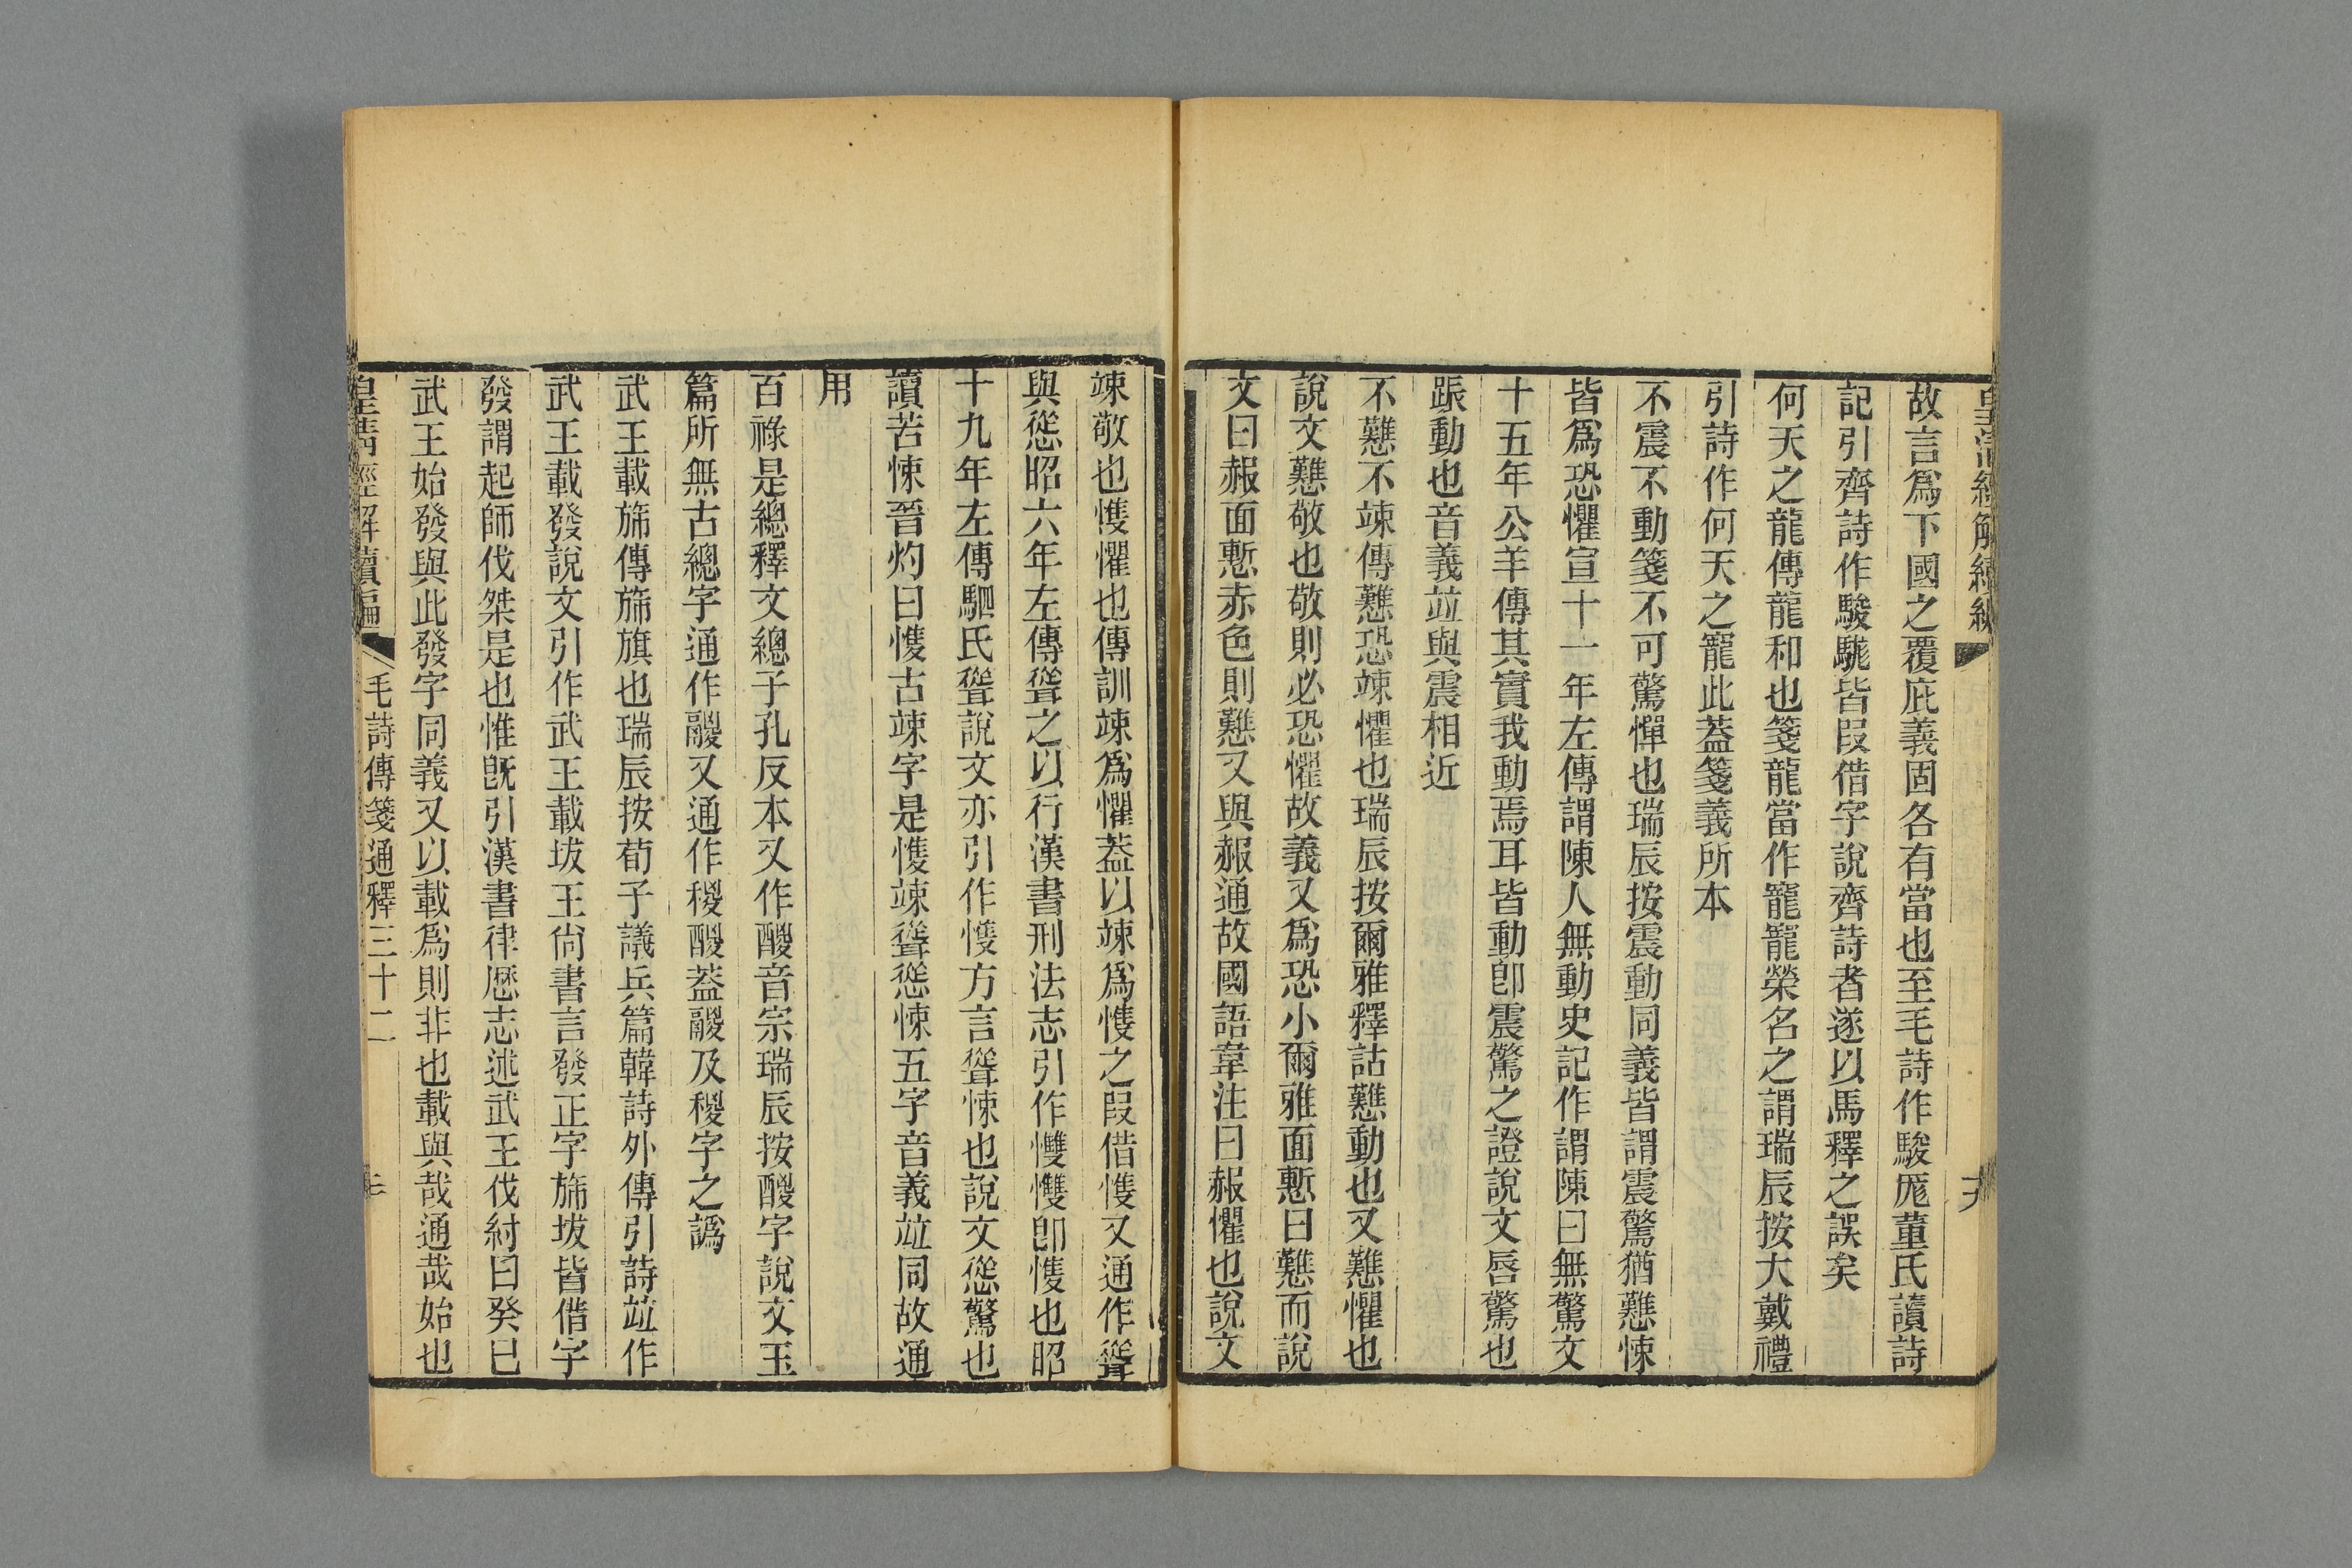 皇淸經解續編
故言爲下國之覆庇義固各有當也至毛詩作駿厖董氏讀詩
記引齊詩作駿駹皆叚借字說齊詩者遂以馬釋之誤矣
何天之龍傳龍和也箋龍當作寵寵榮名之謂瑞辰按大戴禮
引詩作何天之寵此蓋箋義所本
不震不動箋不可驚憚也瑞辰按震動同義皆謂震驚猶戁悚
皆爲恐懼宣十一年左傳謂陳人無動史記作謂陳曰無驚文
十五年公羊傳其實我動焉耳皆動卽震驚之證說文唇驚也
踬動也音義竝與震相近
不戁不竦傳戁恐竦懼也瑞辰按爾雅釋詁戁動也又戁懼也
說文戁敬也敬則必恐懼故義又爲恐小爾雅面慙曰戁而說
文曰赧面慙赤色則戁又與赧通故國語韋注曰赧懼也說文
竦敬也愯懼也傳訓竦爲懼蓋以竦爲愯之叚借愯又通作聳
與慫昭六年左傳聳之以行漢書刑法志引作㦼㦼卽愯也昭
十九年左傳駟氏聳說文亦引作愯方言聳悚也說文慫驚也
讀若悚晉灼曰愯古竦字是愯竦聳慫悚五字音義竝同故通
用
百祿是總釋文總子孔反本又作鬷音宗瑞辰按鬷字說文玉
篇所無古總字通作鬷又通作稯鬷蓋鬷及稯字之譌
武王載旆傳旆旗也瑞辰按荀子議兵篇韓詩外傳引詩竝作
武王載發說文引作武王載坺王尙書言發正字旆坺皆借字
發謂起師伐桀是也惟旣引漢書律厯志述武王伐紂曰癸巳
武王始發與此發字同義又以載爲則非也載與哉通哉始也
皇淸經解續編
毛詩傳箋通釋三十二